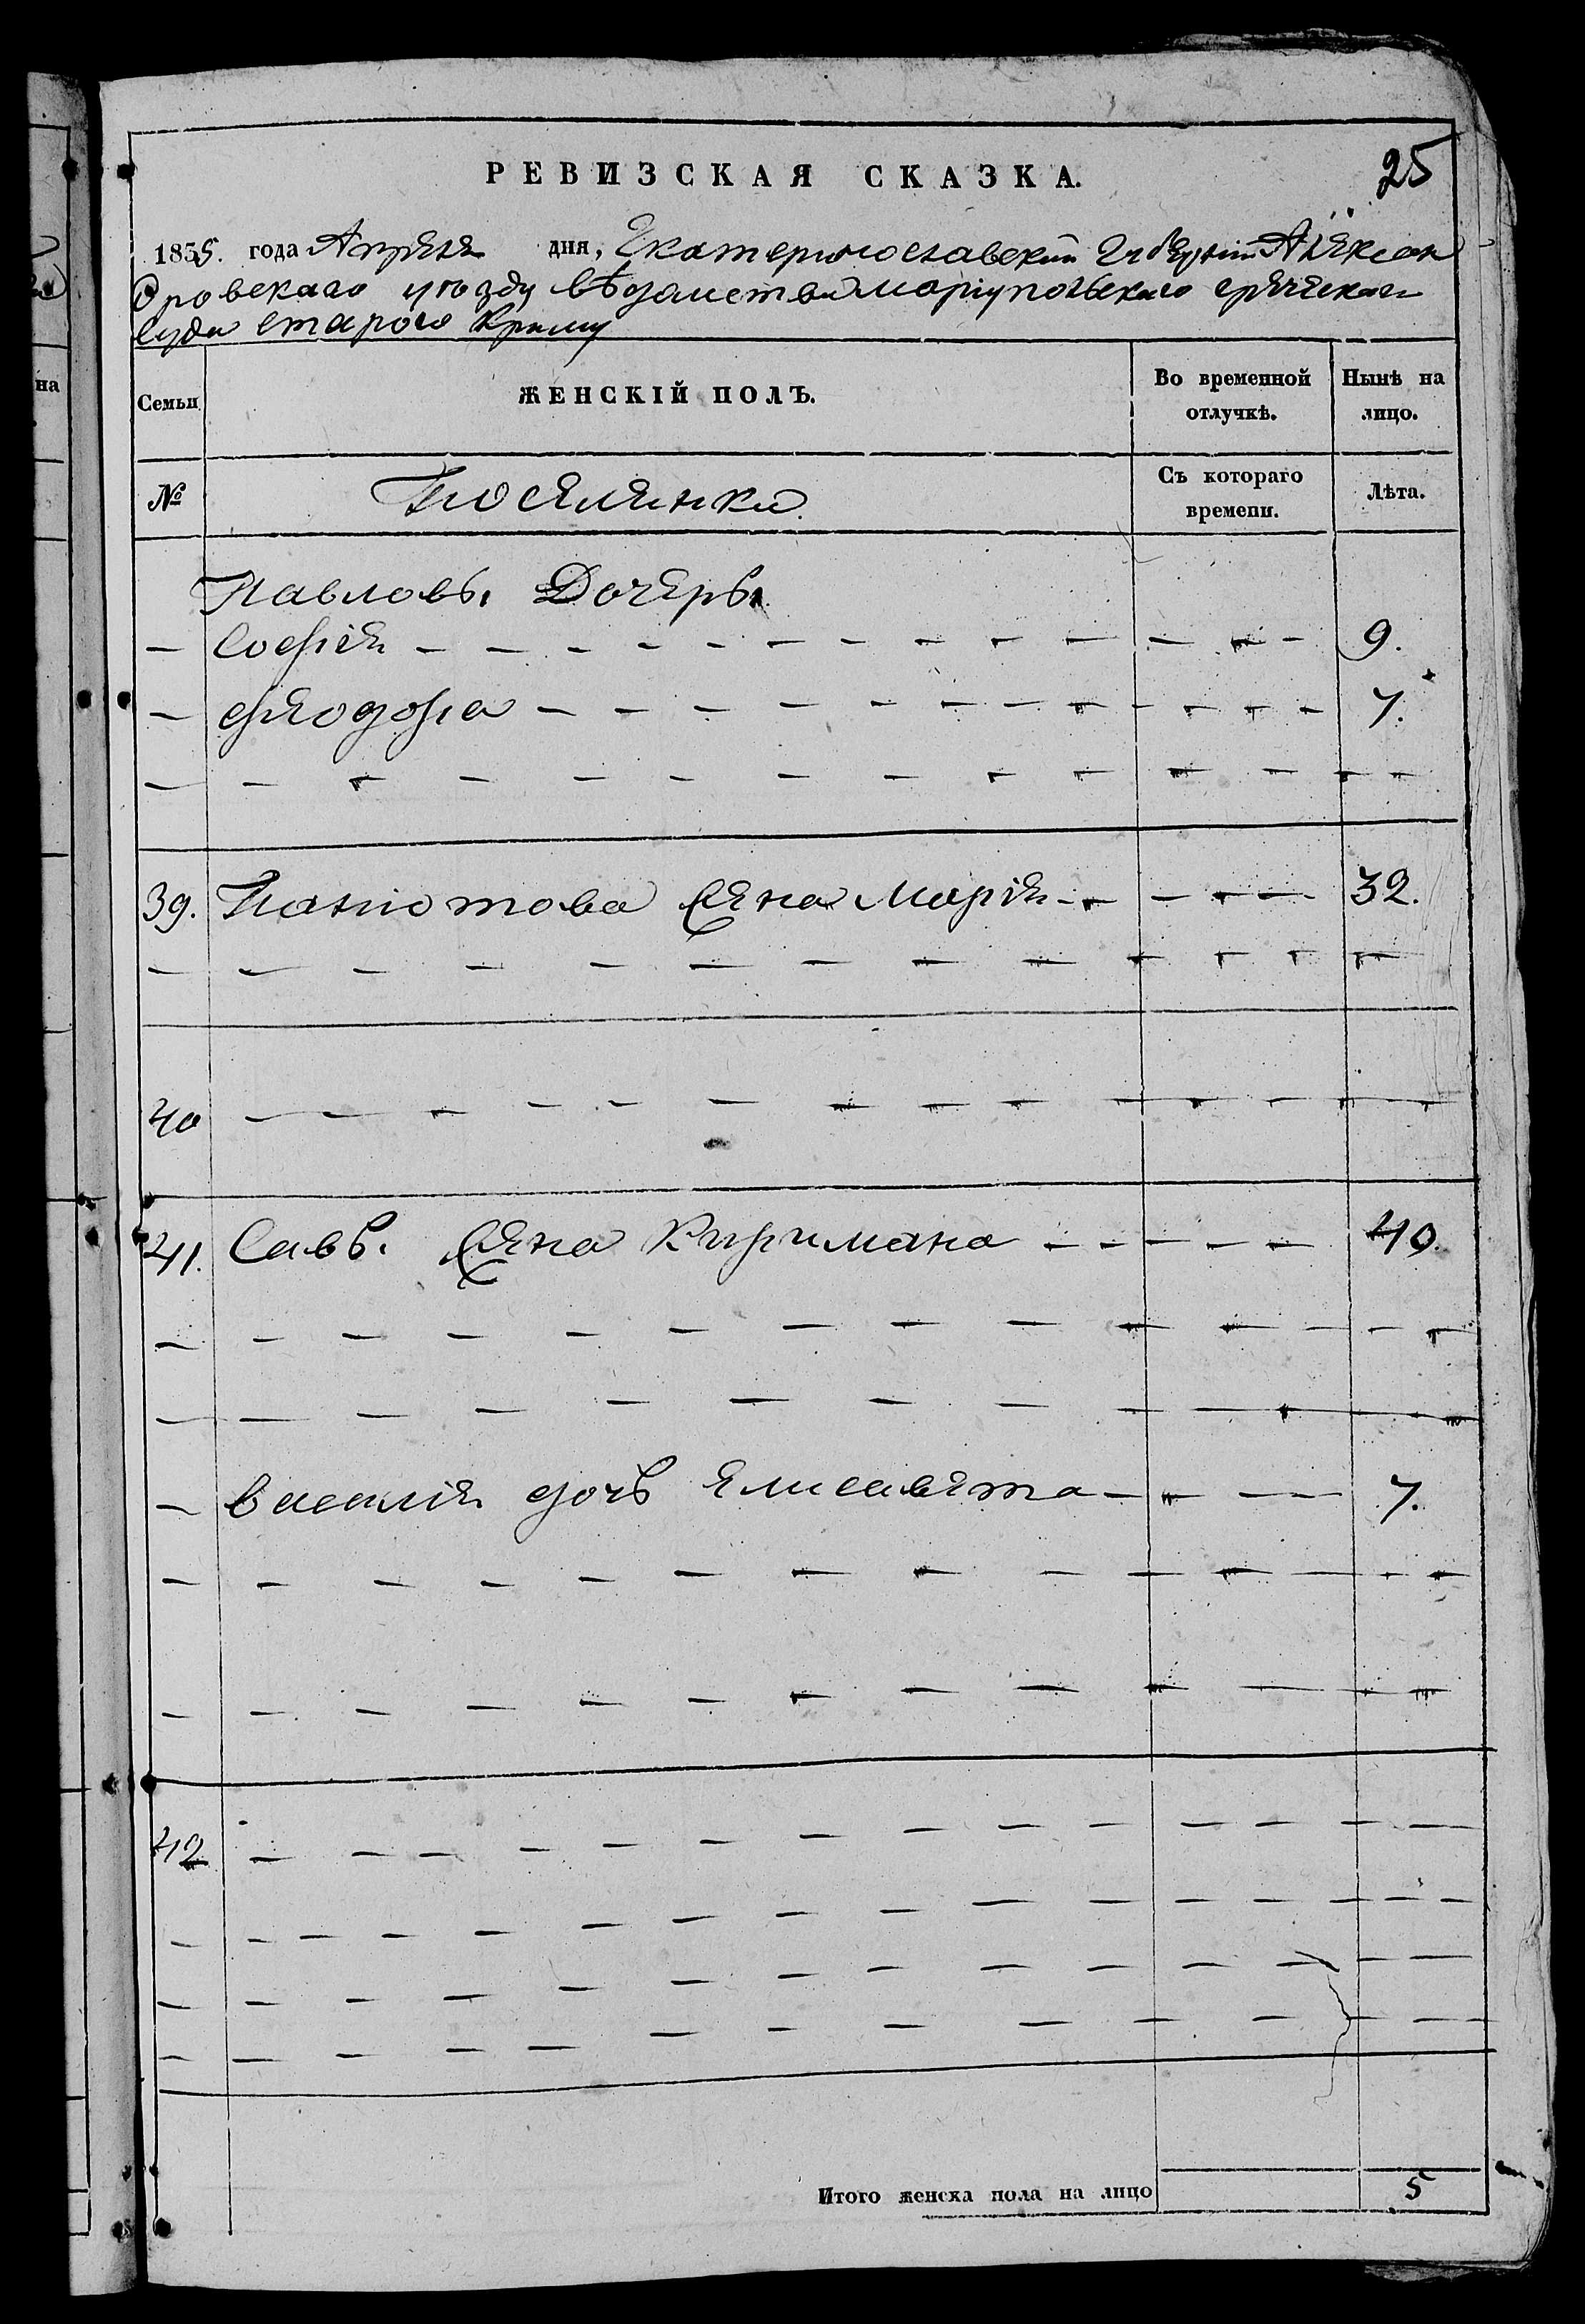 РЕВИЗСКАЯ СКАЗКА.
25
1835. года Апреля дня, Екатеринославский Губерніи Алексан
дровскаго уѣзду вѣдомства мариупольскаго греческаго
суда старого Крыму
Семьи
ЖЕНСКІЙ ПОЛЪ.
Во временной отлучкѣ.
Нынѣ на лицо.
№
Поселянки.
Съ котораго времени.
Лѣта.
Павловы Дочеры
— Софія — — — 9.
— феодора — — — 7.
— — — —
39. Паниотова Жена Марія — — — 32.
— — — —
40 — — — —
41. Савы. Жена Киримана — — — 40.
— — — —
— — — —
— василія дочь елисавета — — — 7.
— — — —
— — — —
42 — — — —
— — — —
— — — —
— — — —
Итого женска пола на лицо 5